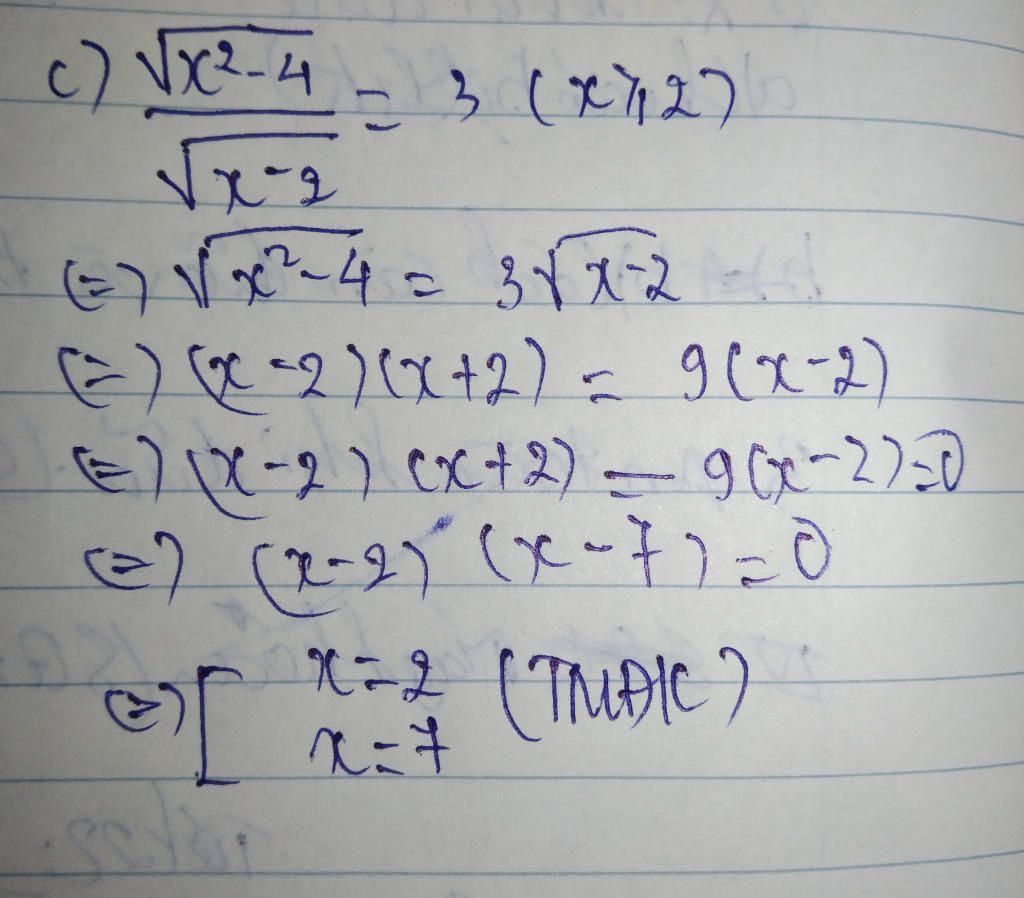 c) √(x²-4) / √(x-2) = 3 (x ⩾ 2)
(=) √(x²-4) = 3√(x-2)
(=) (x-2)(x+2) = 9(x-2)
(=) (x-2)(x+2) - 9(x-2)=0
(=) (x-2)(x-7)=0
(=) [ x=2
x=7 (TMĐK)